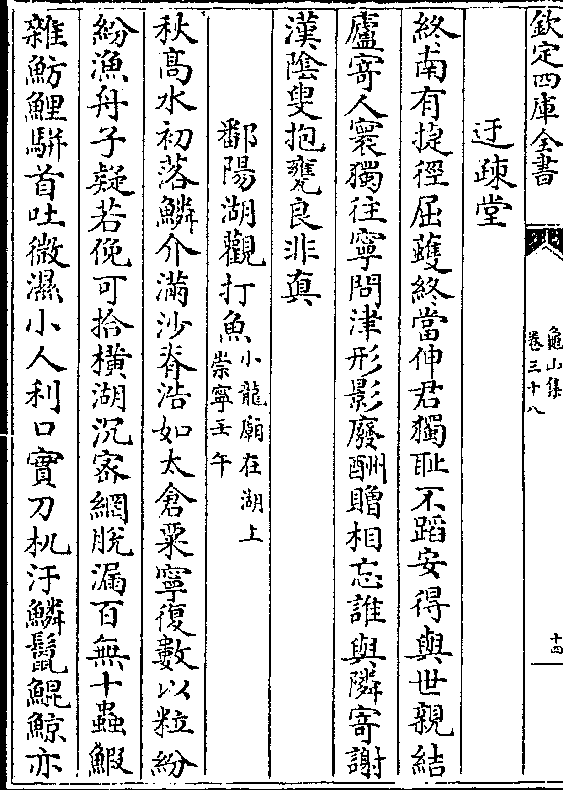 欽定四庫全書
龜山集
卷三十八
十四
迂疎堂
終南有捷徑屈蠖終當伸君獨耻不蹈安得與世親結
廬寄人寰獨往寧問津形影廢酬贈相忘誰與隣寄謝
漢陰叟抱甕良非真
鄱陽湖觀打魚小龍廟在湖上
崇寧壬午
秋髙水初落鱗介滿沙脊浩如太倉粟寧復數以粒紛
紛漁舟子疑若俛可拾橫湖沉宻網脫漏百無十蟲鰕
雜魴鯉駢首吐微濕小人利口實刀机汙鱗鬛鯤鯨亦